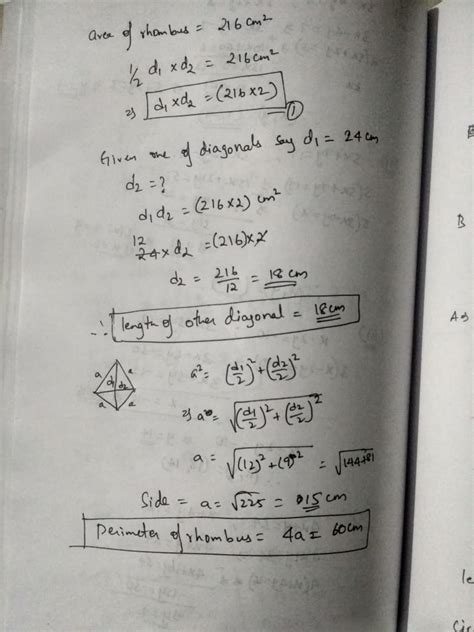 area of rhombus = 216cm²
1/2 d₁ × d₂ = 216cm²
⇒ d₁×d₂ = (216×2) — ①
Given one of diagonals say d₁ = 24cm
d₂ = ?
d₁d₂ = (216×2) cm²
12
24 × d₂ = (216)×2
d₂ = 216/12 = 18 cm
∴ length of other diagonal = 18cm
a a d₁ d₂ a a
a² = (d₁/2)² + (d₂/2)²
⇒ a = √(d₁/2)² + (d₂/2)²
a = √(12)² + (9)² = √144+81
Side = a = √225 = 15cm
Perimeter of rhombus = 4a = 60cm
B
le